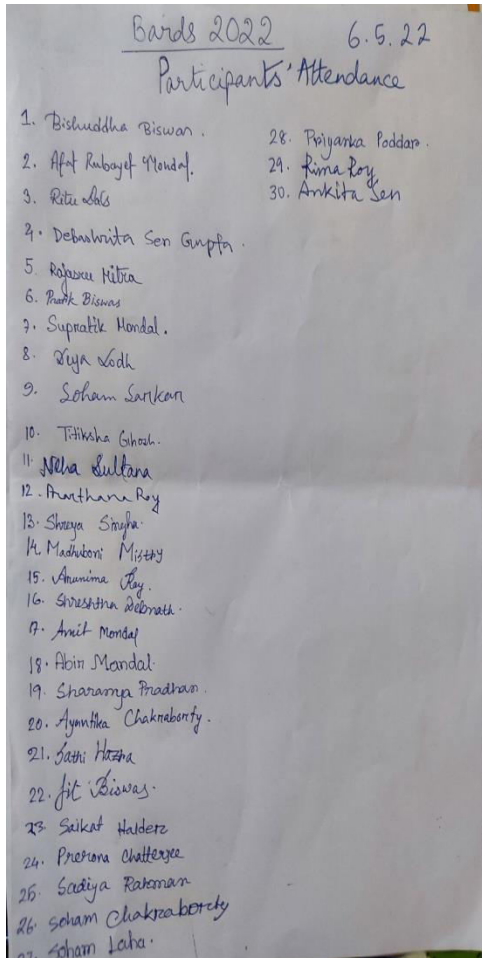 Bards 2022
6.5.22
Participants' Attendance
1. Bishuddha Biswas.
2. Afat Rubayet Mondal.
3. Ritu Das
4. Debashrita Sen Gupta.
5. Rajasree Mitra
6. Pratik Biswas
7. Supratik Mondal.
8. Lodh
9. Soham Sarkar
10. Titiksha Ghosh.
11. Neha Sultana
12. Prarthana Roy
13. Shreya Singha.
14. Madhuboni Mistry
15. Arunima Roy.
16. Shreshtha Debnath.
17. Amit Mondal
18. Abir Mandal.
19. Sharanya Pradhan.
20. Ayantika Chakraborty.
21. Sathi Hazra
22. Jit Biswas.
23. Saikat Halder
24. Prerona Chatterjee
25. Sadiya Rahman
26. Soham Chakraborty
27. Soham Laha.
28. Priyanka Poddar.
29. Rima Roy
30. Ankita Sen